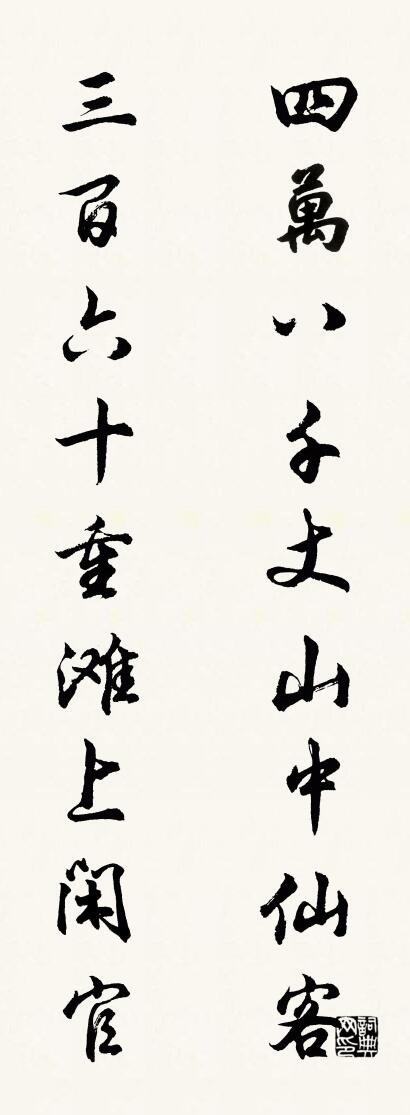 四萬八千丈山中仙客
三百六十重滩上閑官
詞典網印